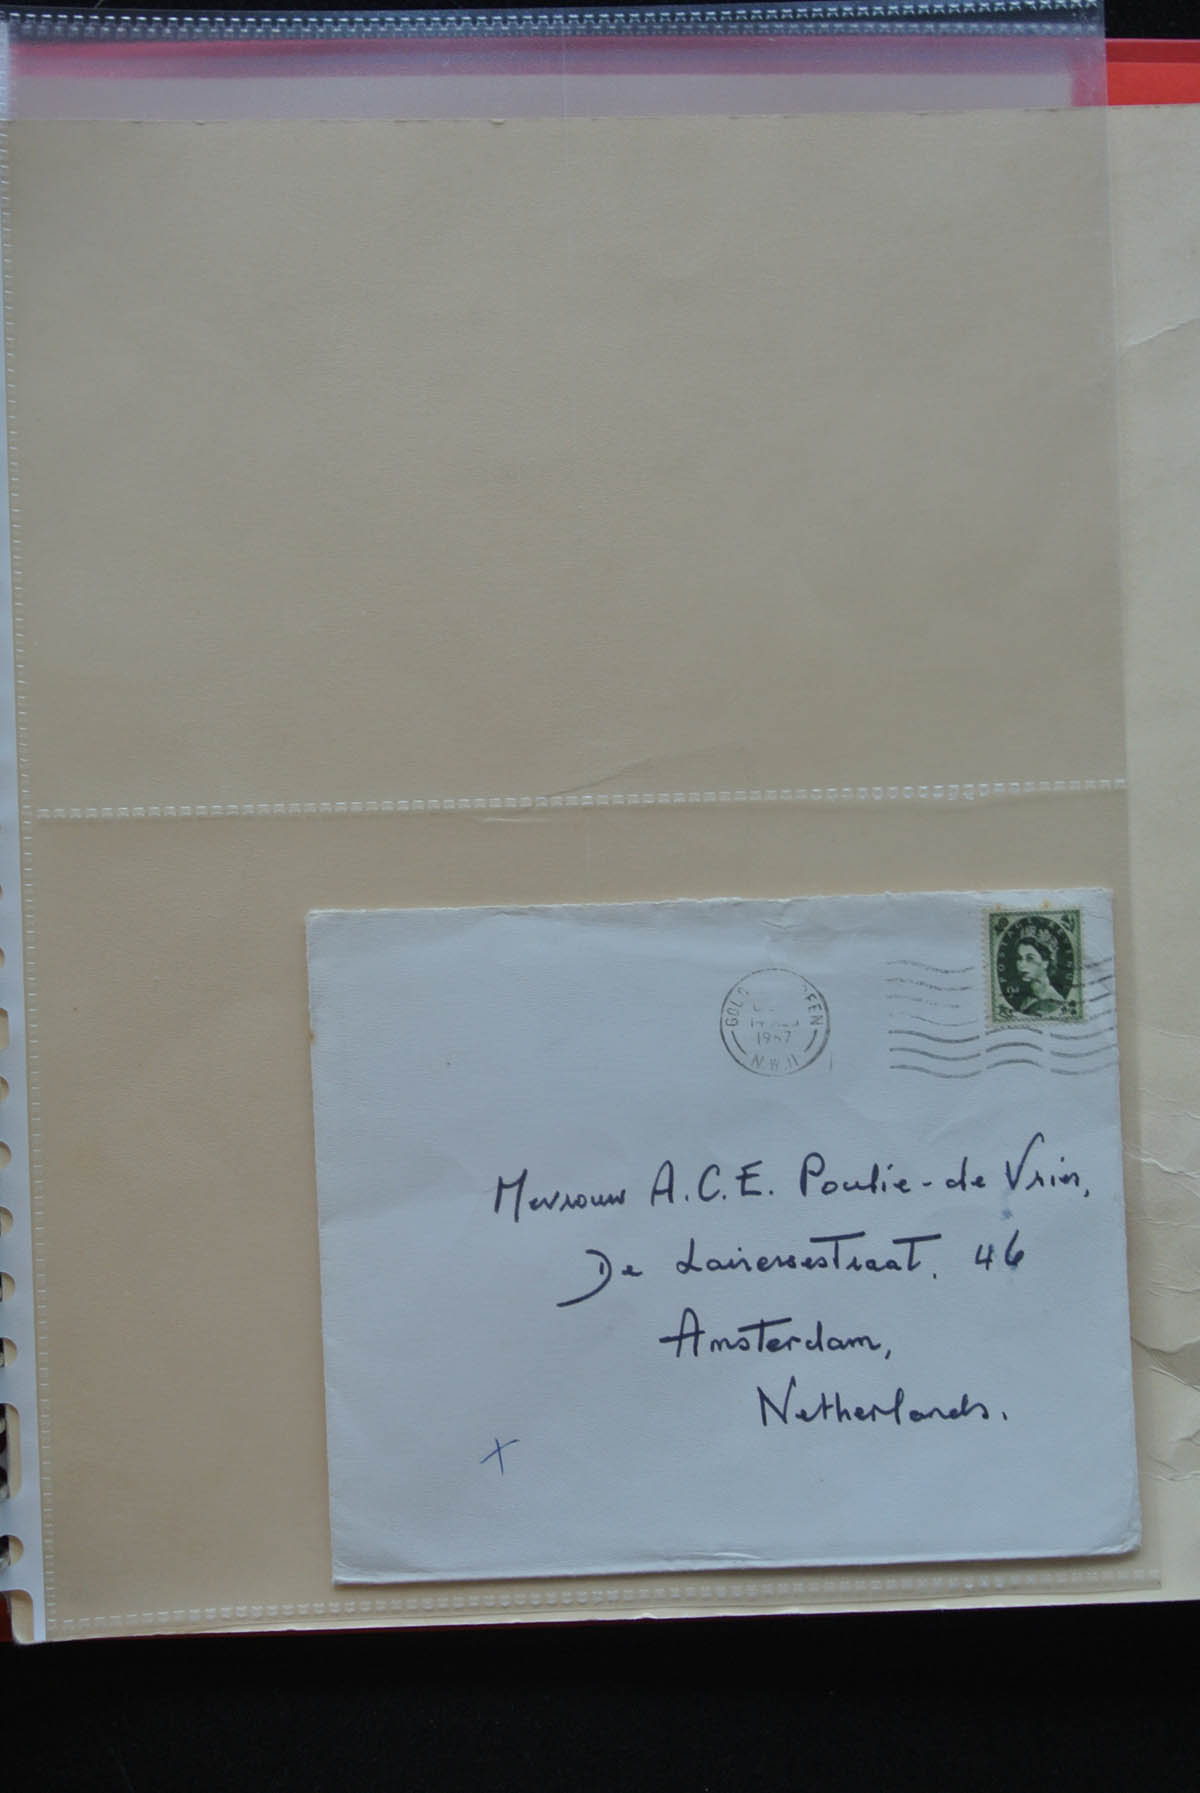 1967
N.W.11
Mevrouw A.C.E. Poulie-de Vries,
De Lairessestraat. 46
Amsterdam,
Netherlands.
X